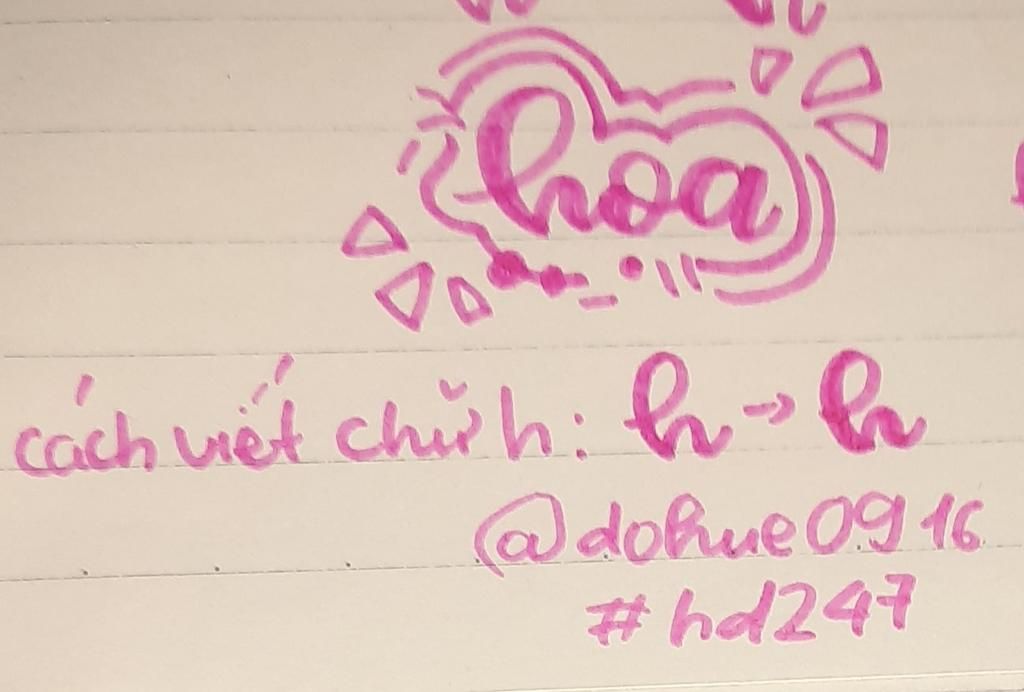 hoa
cách viết chữ h: h → h
@dohue0916
#hd247